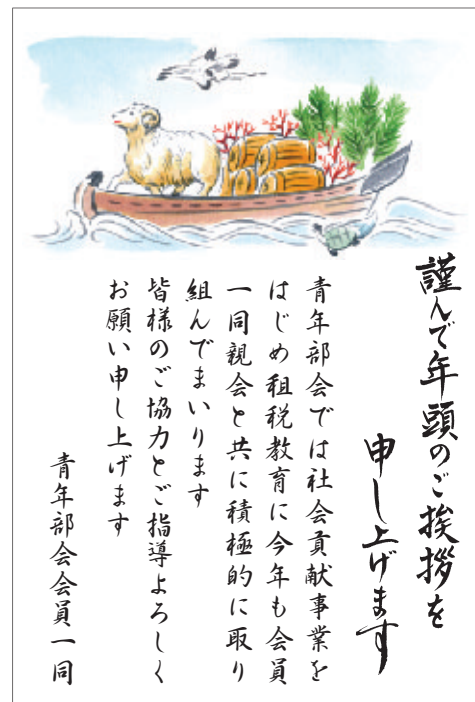 謹んで年頭のご挨拶を
申し上げます
青年部会では社会貢献事業を
はじめ租税教育に今年も会員
一同親会と共に積極的に取り
組んでまいります
皆様のご協力とご指導よろしく
お願い申し上げます
青年部会会員一同